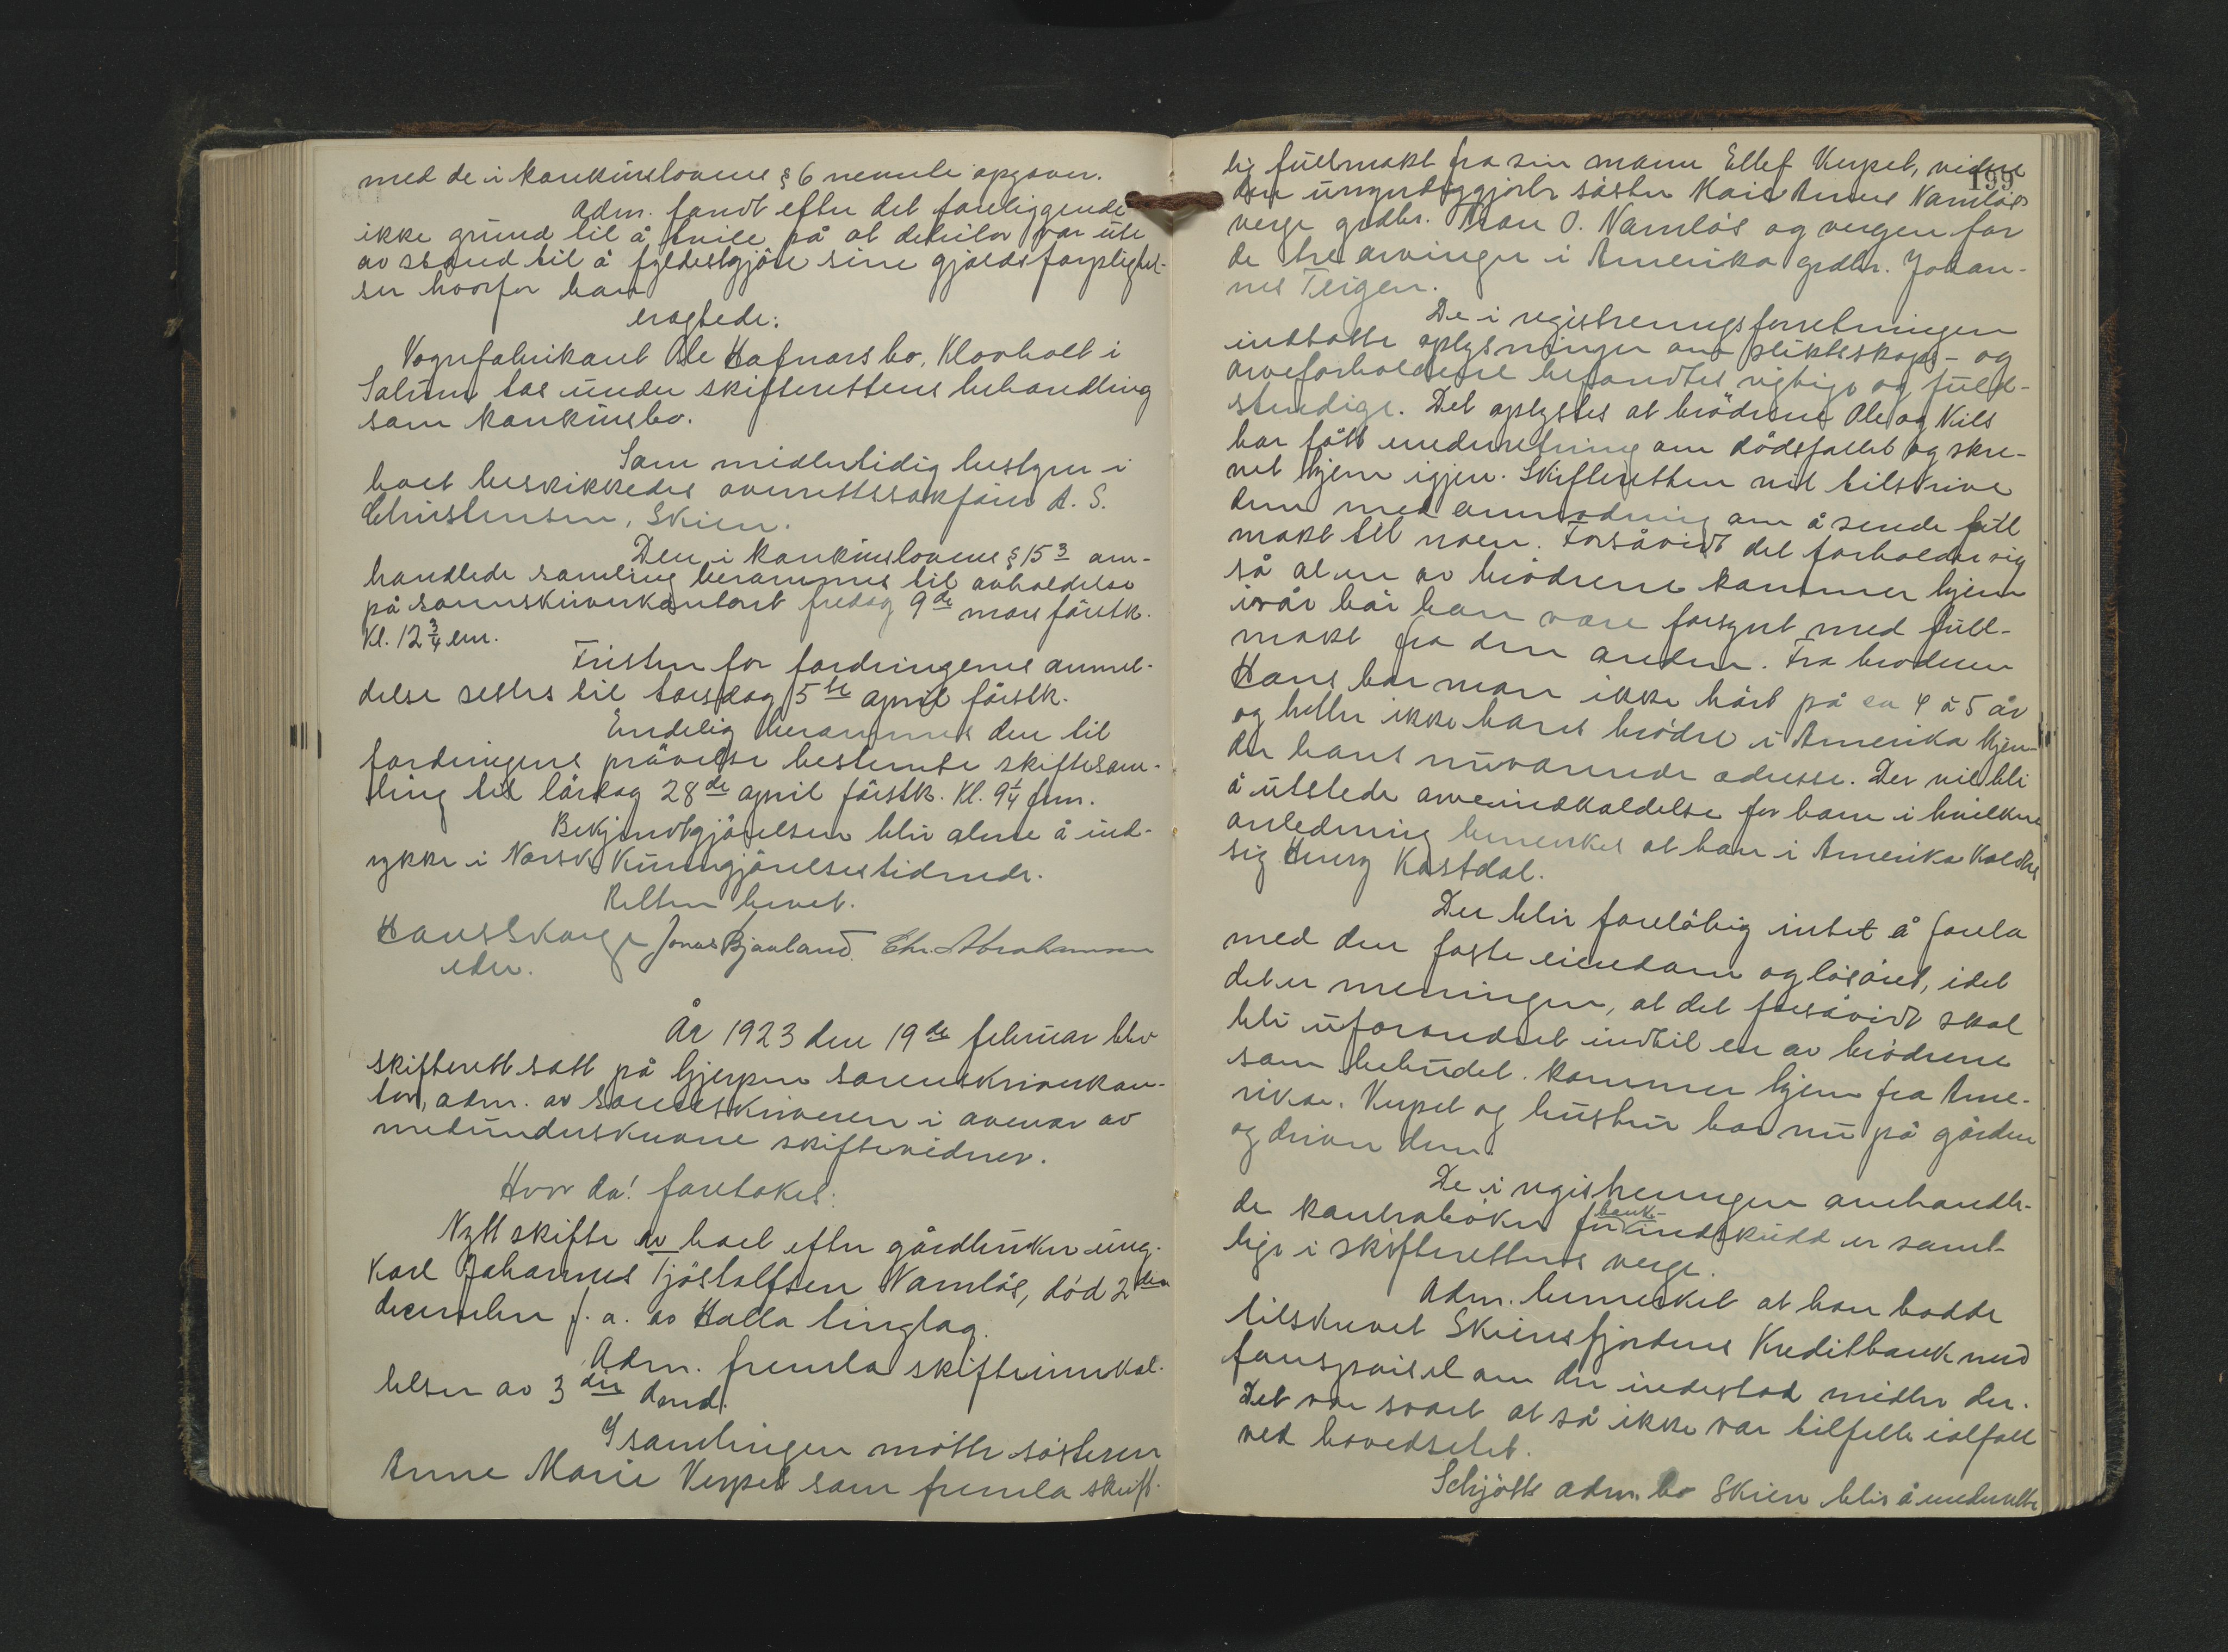 med de i konkurslovens § 6 nevnte opgaver.
Adm. fandt efter det foreliggende
ikke grund til å tvile på at debitor var ute
av stand til å fyldestgjöre sine gjældsforpligtel-
ser hvorfor han
eragtede:
Vognfabrikant Ole Hafnorsbo, Klovholt i
Solum tas under skifterettens behandling
som konkursbo.
Som midlertidig bestyrer i
boet beskikkedes overrettssakförer A. S.
Christensen, Skien.
Den i konkurslovens § 15 3 om-
handlede samling berammes til avholdelse
på sorenskriverkontoret fredag 9de mars förstk.
Kl. 12 3/4 em.
Fristen for fordringernes anmel-
delse settes til torsdag 5te april förstk.
Endelig berammes den til
fordringens prövelse bestemte skiftesam-
ling til lördag 28de april förstk. Kl. 9 1/4 fm.
Bekjendtgjörelsen blir alene å ind-
rykke i Norsk Kunngjörelsestidende.
Retten hevet.
Hans Skauge Jonas Bjaaland. Chr. Abrahamsen
edv.
År 1923 den 19de februar blev
skifterett satt på Gjerpen sorenskriverkon-
tor, adm. av sorenskriveren i overvær av
medunderskrevne skiftevidner.
Hvor da! foretokes:
Nytt skifte av boet efter gårdbruker ung.
Karl Johannes Tjöstolfsen Namlös, död 2den
december f. a. av Holla tinglag.
Adm. fremla skifteinnkal-
lelsen av 3die dends.
I samlingen mötte sösteren
Anne Marie Verpet som fremla skrift-
lig fullmakt fra sin mann Ellef Verpet, videre
den umyndiggjorte söster Karen Annes Namlös
verge grdbr. O. Namlös og vergen for
de tre arvinger i Amerika grdbr. Johan-
nes Teigen.
De i registreringsforretningen
inntatte oplysninger om slektskaps- og
arveforholdene befandtes rigtige og fuld-
stendige. Det oplystes at brödrene Ole og Nils
har fått underretning om dödsfallet og skre-
vet hjem igjen. Skifteretten vil tilskrive
dem med anmodning om å sende full-
makt til noen. Forsåvidt det forholder sig
så at en av brödrene kommer hjem
ivår bör han være forsynt med full-
makt fra den anden. Fra broderen
Hans har man ikke hört på ca 4 à 5 år
og heller ikke hans brödre i Amerika kjen-
der hans nuværende adresse. Der vil bli
å utstede arveindkaldelse for ham i hvilken
anledning bemerkes at han i Amerika kaldte
sig Henry Kastdal.
Der blir forelöbig intet å foreta
med den faste eiendom og lösöret, idet
det er meningen, at det forsåvidt skal
bli uforandret indtil en av brödrene
som bebudet kommer hjem fra Ame-
rika. Verpet og hustru bor nu på gården
og driver den.
De i registreringen omhandle-
de kontraböker for bank-indskudd er samt-
lige i skifterettens verge.
Adm. bemerket at han hadde
tilskrevet Skiensfjordens Kreditbank med
forespörsel om der indestod midler der.
Det var svaret at så ikke var tilfelle ialfall
ved hovedsetet.
Schjötts adm. bo Skien blir å underrette
199